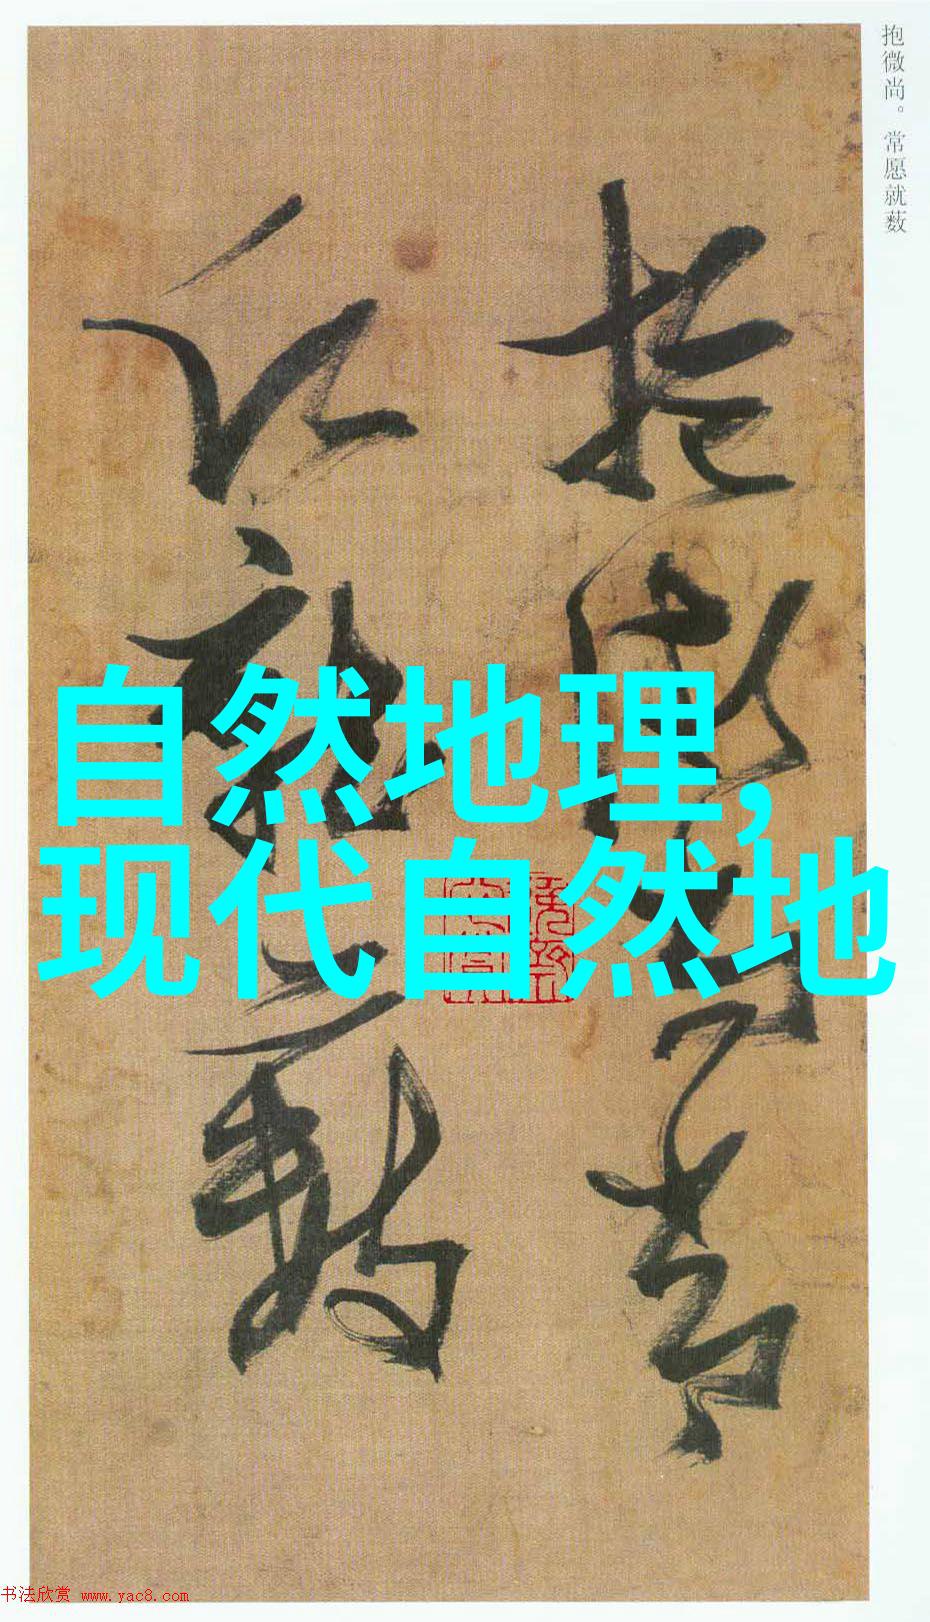 抱微尚。常愿就薮
抱微尚
常愿就薮
自然地理,
现代自然地
书法欣赏 www.yac8.com